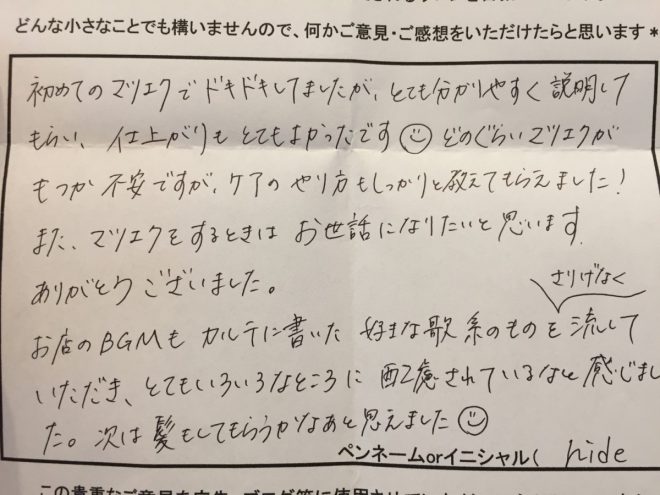 どんな小さなことでも構いませんので、何かご意見・ご感想をいただけたらと思います*
初めてのマツエクでドキドキしてましたが、とても分かりやすく説明して
もらい、仕上がりもとてもよかったです☺どのぐらいマツエクが
もつか不安ですが、ケアのやり方もしっかりと教えてもらえました!
また、マツエクをするときはお世話になりたいと思います
ありがとうございました。
さりげなく
お店のBGMもカルテに書いた好きな歌系のものを流して
いただき、とてもいろいろなところに配慮されているなと感じまし
た。次は髪もしてもらうかなあと思えました☺
ペンネームorイニシャル( hide